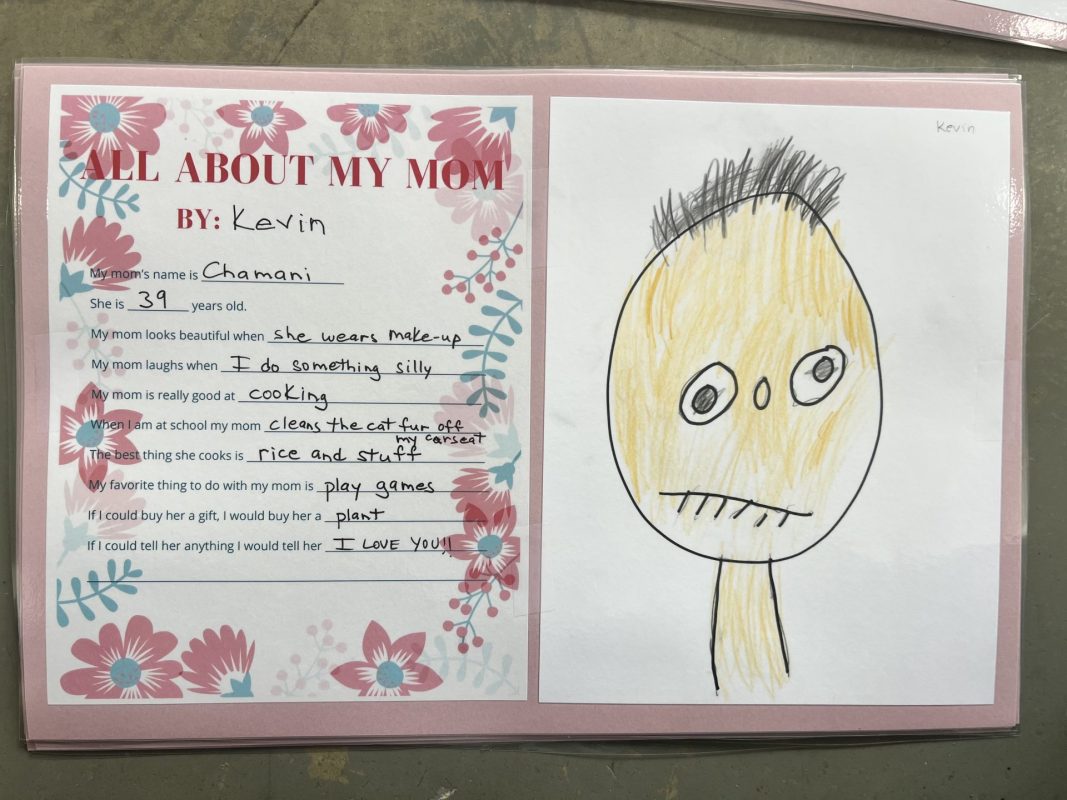 ALL ABOUT MY MOM
BY: Kevin
My mom's name is Chamani
She is 39 years old.
My mom looks beautiful when she wears make-up
My mom laughs when I do something silly
My mom is really good at cooking
When I am at school my mom cleans the cat fur off
my carseat
The best thing she cooks is rice and stuff
My favorite thing to do with my mom is play games
If I could buy her a gift, I would buy her a plant
If I could tell her anything I would tell her I LOVE YOU!!
Kevin